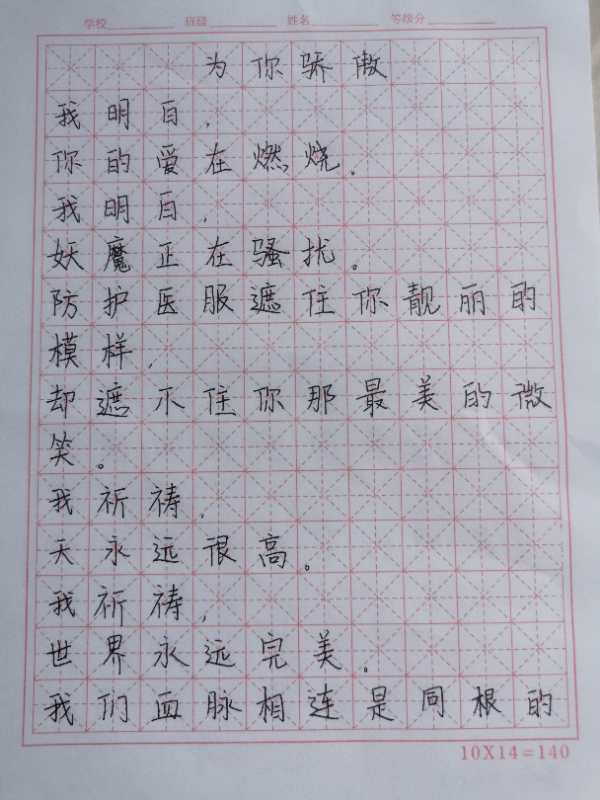 学校 班级 姓名 等级分
为你骄傲
我明白，
你的爱在燃烧。
我明白，
妖魔正在骚扰。
防护医服遮住你靓丽的
模样，
却遮不住你那最美的微
笑。
我祈祷，
天永远很高。
我祈祷，
世界永远完美。
我们血脉相连是同根的
10X14=140